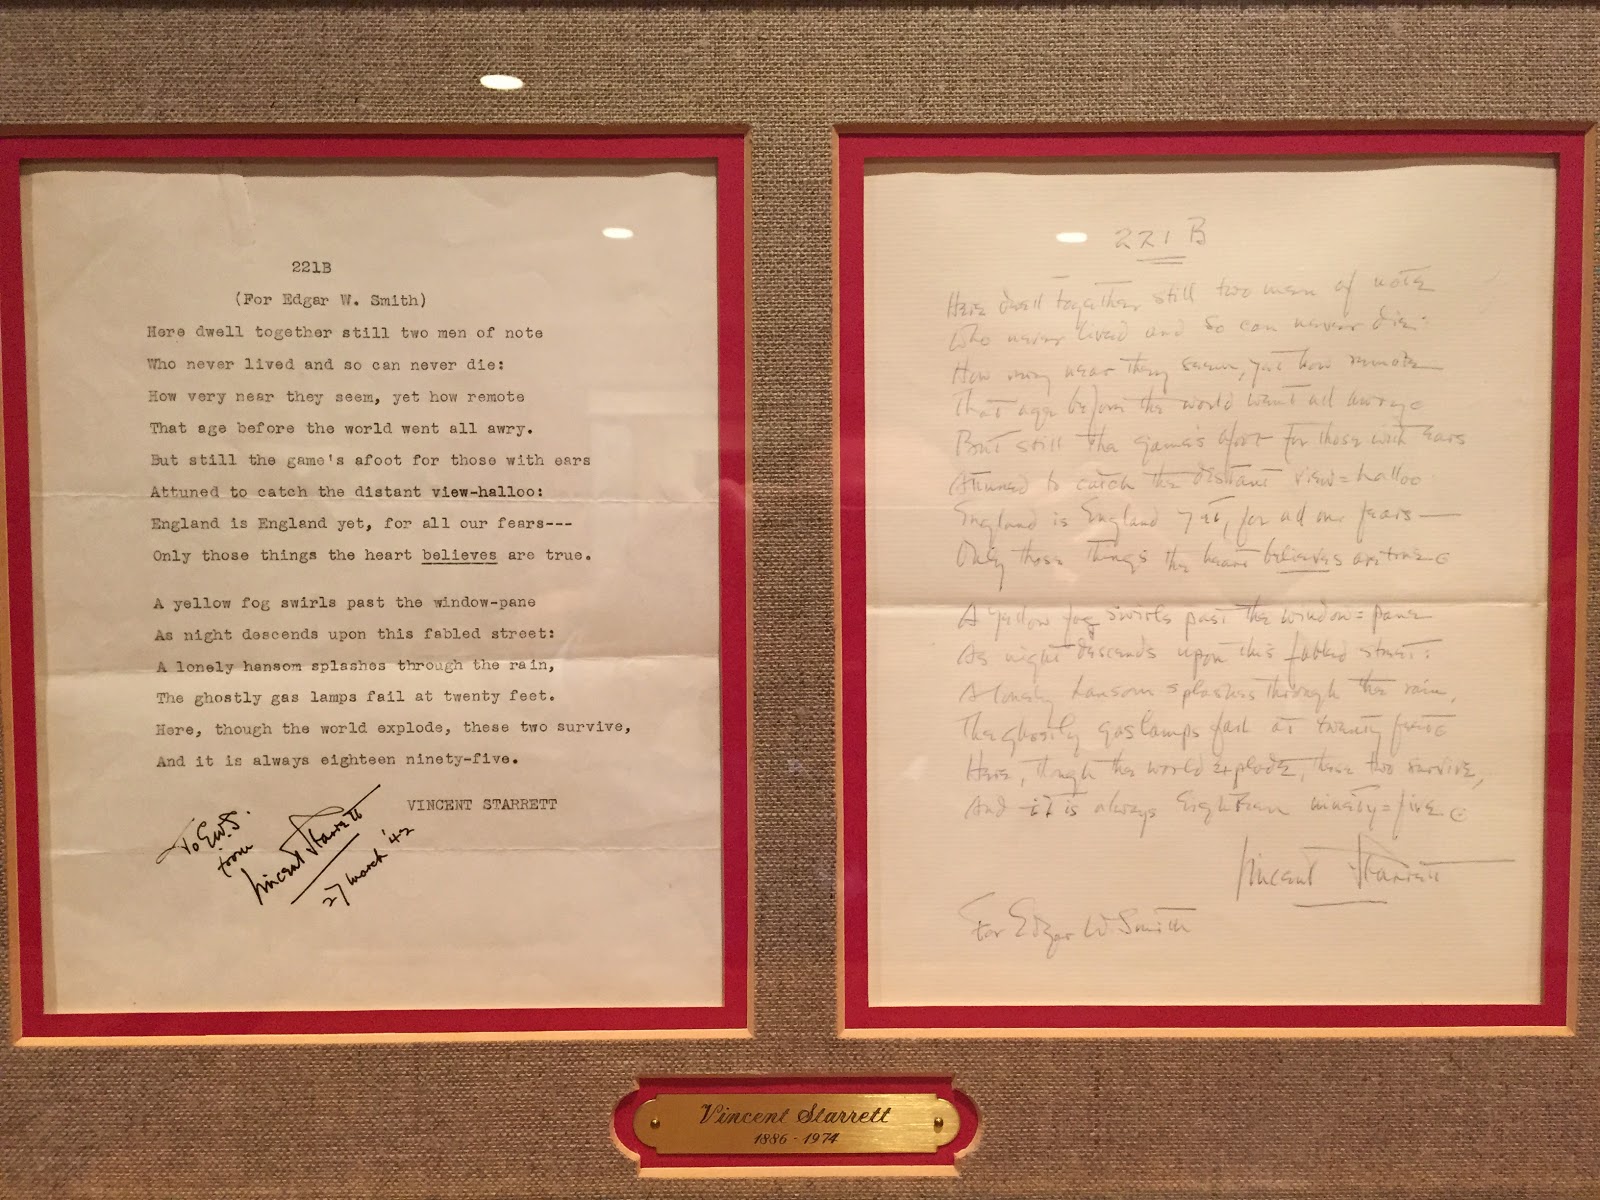 221B
(For Edgar W. Smith)
Here dwell together still two men of note
Who never lived and so can never die:
How very near they seem, yet how remote
That age before the world went all awry.
But still the game's afoot for those with ears
Attuned to catch the distant view-halloo:
England is England yet, for all our fears---
Only those things the heart believes are true.
A yellow fog swirls past the window-pane
As night descends upon this fabled street:
A lonely hansom splashes through the rain,
The ghostly gas lamps fail at twenty feet.
Here, though the world explode, these two survive,
And it is always eighteen ninety-five.
VINCENT STARRETT
To E.W.S.
from
Vincent Starrett
27 March '42
221 B
Here dwell together still two men of note
Who never lived and so can never die:
How very near they seem, yet how remote
That age before the world went all awry.
But still the game's afoot for those with ears
Attuned to catch the distant view=halloo
England is England yet, for all our fears—
Only those things the heart believes are true.
A yellow fog swirls past the window=pane
As night descends upon this fabled street:
A lonely hansom splashes through the rain,
The ghostly gas lamps fail at twenty feet.
Here, though the world explode, these two survive,
And it is always eighteen ninety=five.
Vincent Starrett
For Edgar W. Smith
Vincent Starrett
1886 - 1974